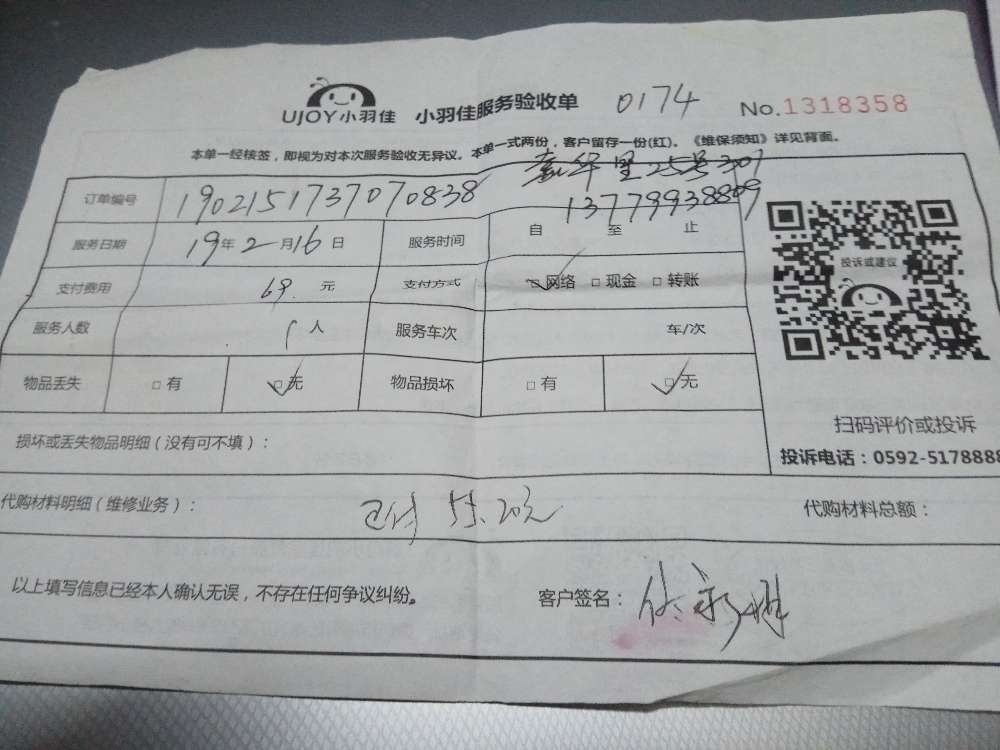 UJOY小羽佳 小羽佳服务验收单 0174 No.1318358
本单一经核签，即视为对本次服务验收无异议。本单一式两份，客户留存一份(红)。《维保须知》详见背面。
华里25号307
订单编号 1902151737070838 13779938809
服务日期 19年2月16日 服务时间 自 至 止
支付费用 69. 元 支付方式 □网络 □现金 □转账
服务人数 1人 服务车次 车/次
物品丢失 □有 □无 物品损坏 □有 □无
投诉或建议
扫码评价或投诉
投诉电话：0592-5178888
损坏或丢失物品明细（没有可不填）：
代购材料明细（维修业务）： 已付 55.20元 代购材料总额：
以上填写信息已经本人确认无误，不存在任何争议纠纷。 客户签名：